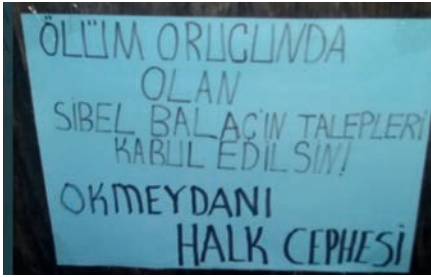 ÖLÜM ORUCUNDA
OLAN
SİBEL BALAÇ'IN TALEPLERİ
KABUL EDİLSİN!
OKMEYDANI
HALK CEPHESİ